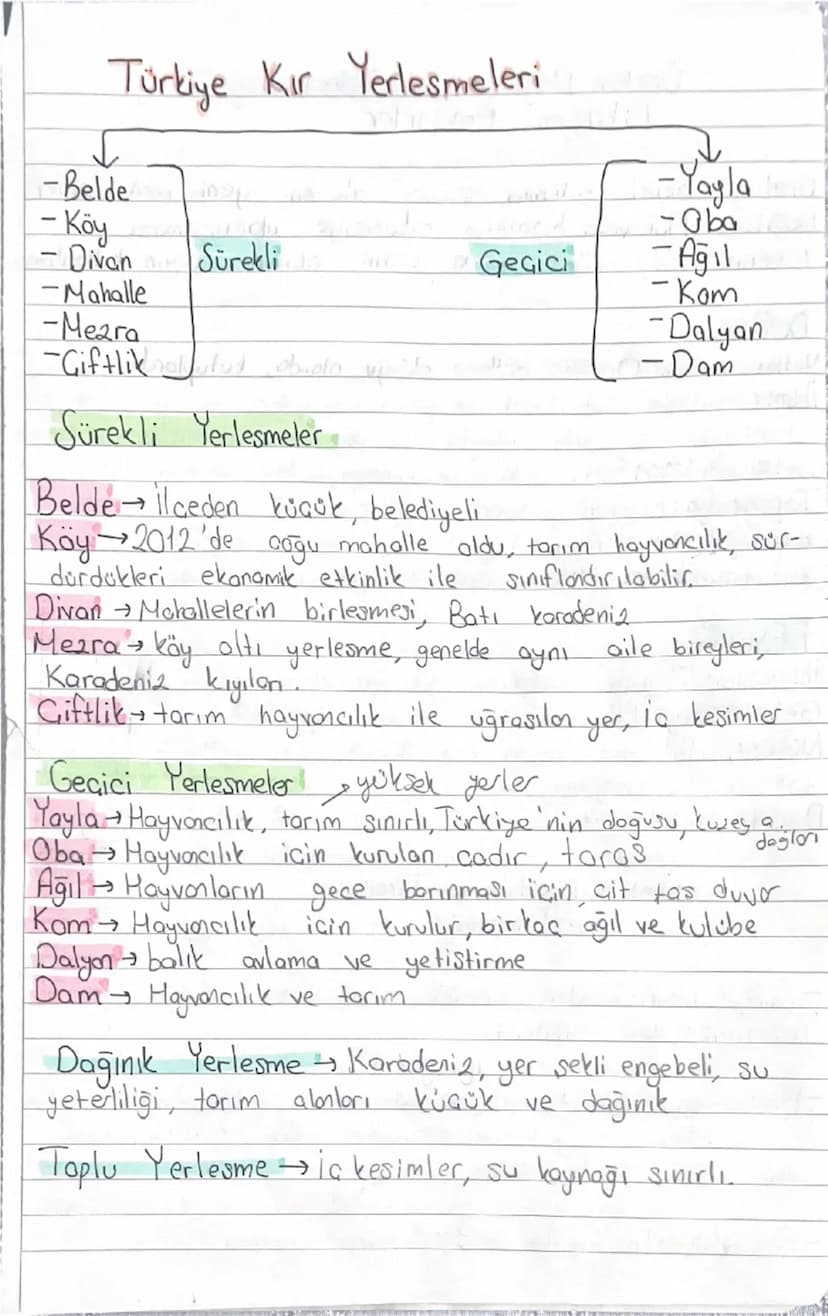 Türkiye Kır Yerleşmeleri
-Belde
-Köy
-Divan
-Mahalle
-Mezra
-Çiftlik
Sürekli
Geçici
-Yayla
-Oba
-Ağıl
-Kom
-Dalyan
-Dam
Sürekli Yerleşmeler
Belde → İlçeden küçük, belediyeli
Köy → 2012'de çoğu mahalle oldu, tarım hayvancılık, sür-
dürdükleri ekonomik etkinlik ile sınıflandırılabilir.
Divan → Mahallelerin birleşmesi, Batı karadeniz
Mezra → köy altı yerleşme, genelde aynı aile bireyleri,
Karadeniz kıyıları.
Çiftlik → tarım hayvancılık ile uğraşılan yer, iç kesimler
Geçici Yerleşmeler → yüksek yerler
Yayla → Hayvancılık, tarım sınırlı, Türkiye'nin doğusu, kuzey a.
dağları
Oba → Hayvancılık için kurulan çadır, toros
Ağıl → Hayvanların gece barınması için çit taş duvar
Kom → Hayvancılık için kurulur, birkaç ağıl ve kulübe
Dalyan → balık avlama ve yetiştirme
Dam → Hayvancılık ve tarım
Dağınık Yerleşme → Karadeniz, yer şekli engebeli, su
yeterliliği, tarım alanları küçük ve dağınık
Toplu Yerleşme → iç kesimler, su kaynağı sınırlı.